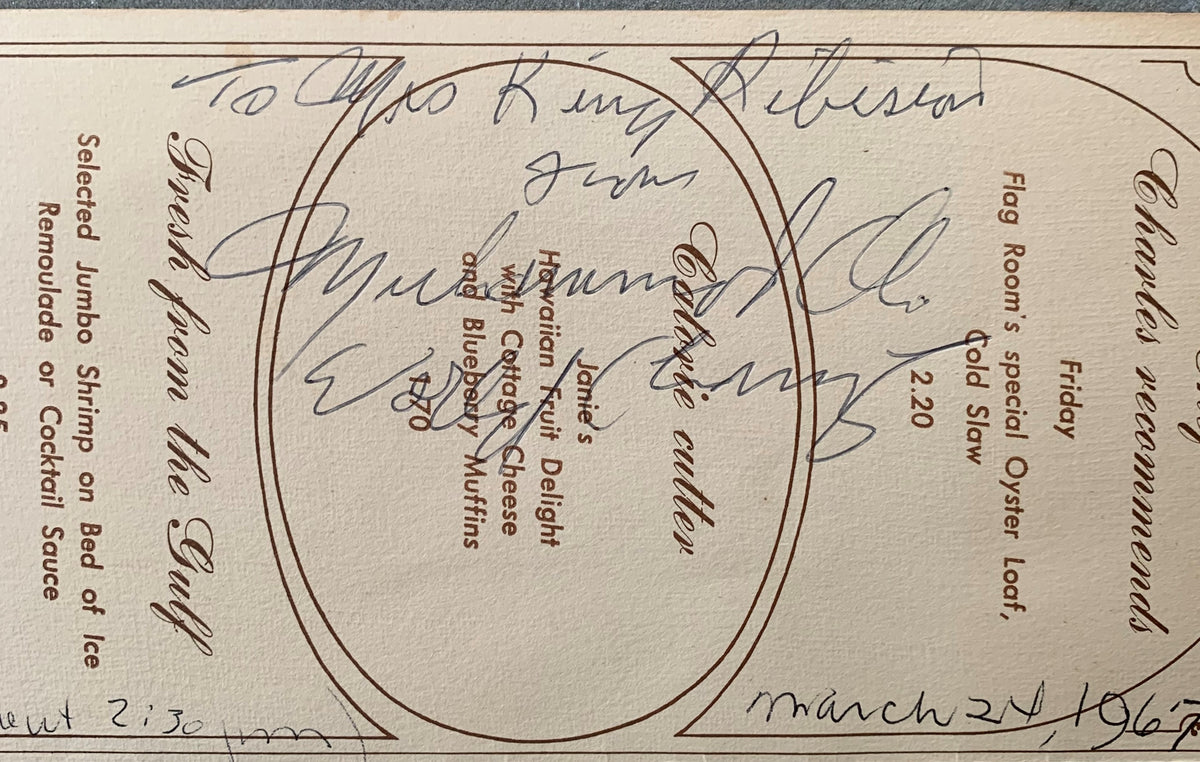 To Mrs King
from
Muhammad Ali
March 24, 1967
2:30 pm
Charles recommends
Friday
Flag Room's special Oyster Loaf,
Cold Slaw
2.20
Calorie cutter
Janie's
Hawaiian Fruit Delight
with Cottage Cheese
and Blueberry Muffins
1.70
Fresh from the Gulf
Selected Jumbo Shrimp on Bed of Ice
Remoulade or Cocktail Sauce